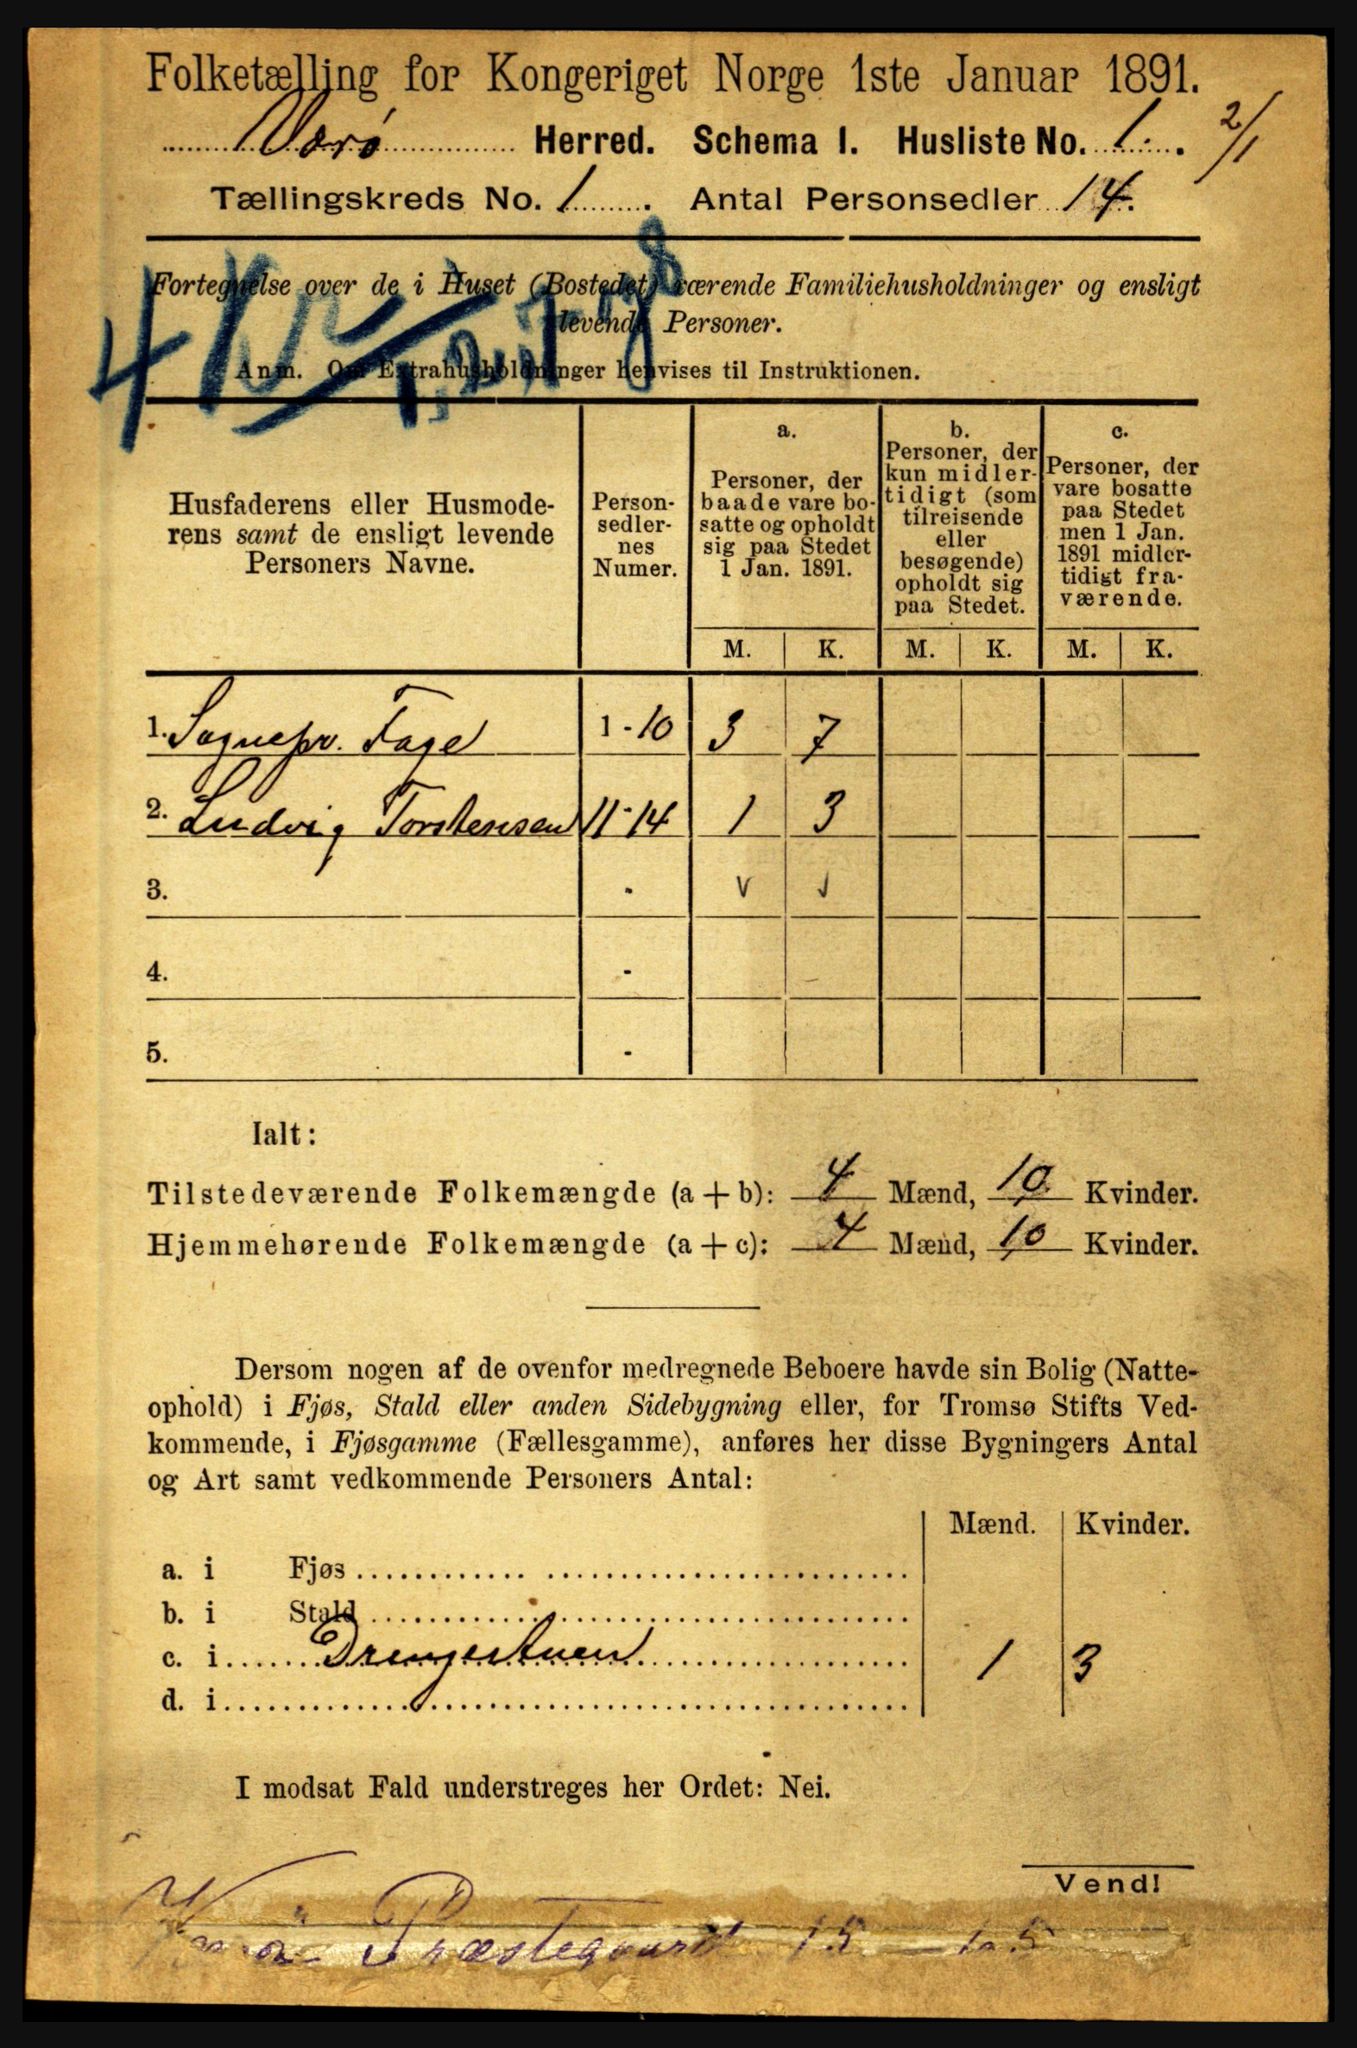 Folketælling for Kongeriget Norge 1ste Januar 1891.
Værø Herred. Schema I. Husliste No. 1. 2/1
Tællingskreds No. 1. Antal Personsedler 14.
Fortegnelse over de i Huset (Bostedet) værende Familiehusholdninger og ensligt
levende Personer.
Anm. Om Extrahusholdninger henvises til Instruktionen.
Husfaderens eller Husmode-
rens samt de ensligt levende
Personers Navne.
Person-
sedler-
nes
Numer.
a.
Personer, der
baade vare bo-
satte og opholdt
sig paa Stedet
1 Jan. 1891.
b.
Personer, der
kun midler-
tidigt (som
tilreisende
eller
besøgende)
opholdt sig
paa Stedet.
c.
Personer, der
vare bosatte
paa Stedet
men 1 Jan.
1891 midler-
tidigt fra-
værende.
M. K. M. K. M. K.
1. Sognepr. Fage 1 - 10 3 7
2. Ludvig Torstensen 11 - 14 1 3
3. - v v
4. -
5. -
Ialt:
Tilstedeværende Folkemængde (a + b): 4 Mænd, 10 Kvinder.
Hjemmehørende Folkemængde (a + c): 4 Mænd, 10 Kvinder.
Dersom nogen af de ovenfor medregnede Beboere havde sin Bolig (Natte-
ophold) i Fjøs, Stald eller anden Sidebygning eller, for Tromsø Stifts Ved-
kommende, i Fjøsgamme (Fællesgamme), anføres her disse Bygningers Antal
og Art samt vedkommende Personers Antal:
Mænd. Kvinder.
a. i Fjøs
b. i Stald
c. i Drengestuen 1 3
d. i
I modsat Fald understreges her Ordet: Nei.
Vend!
Præstegaard 15